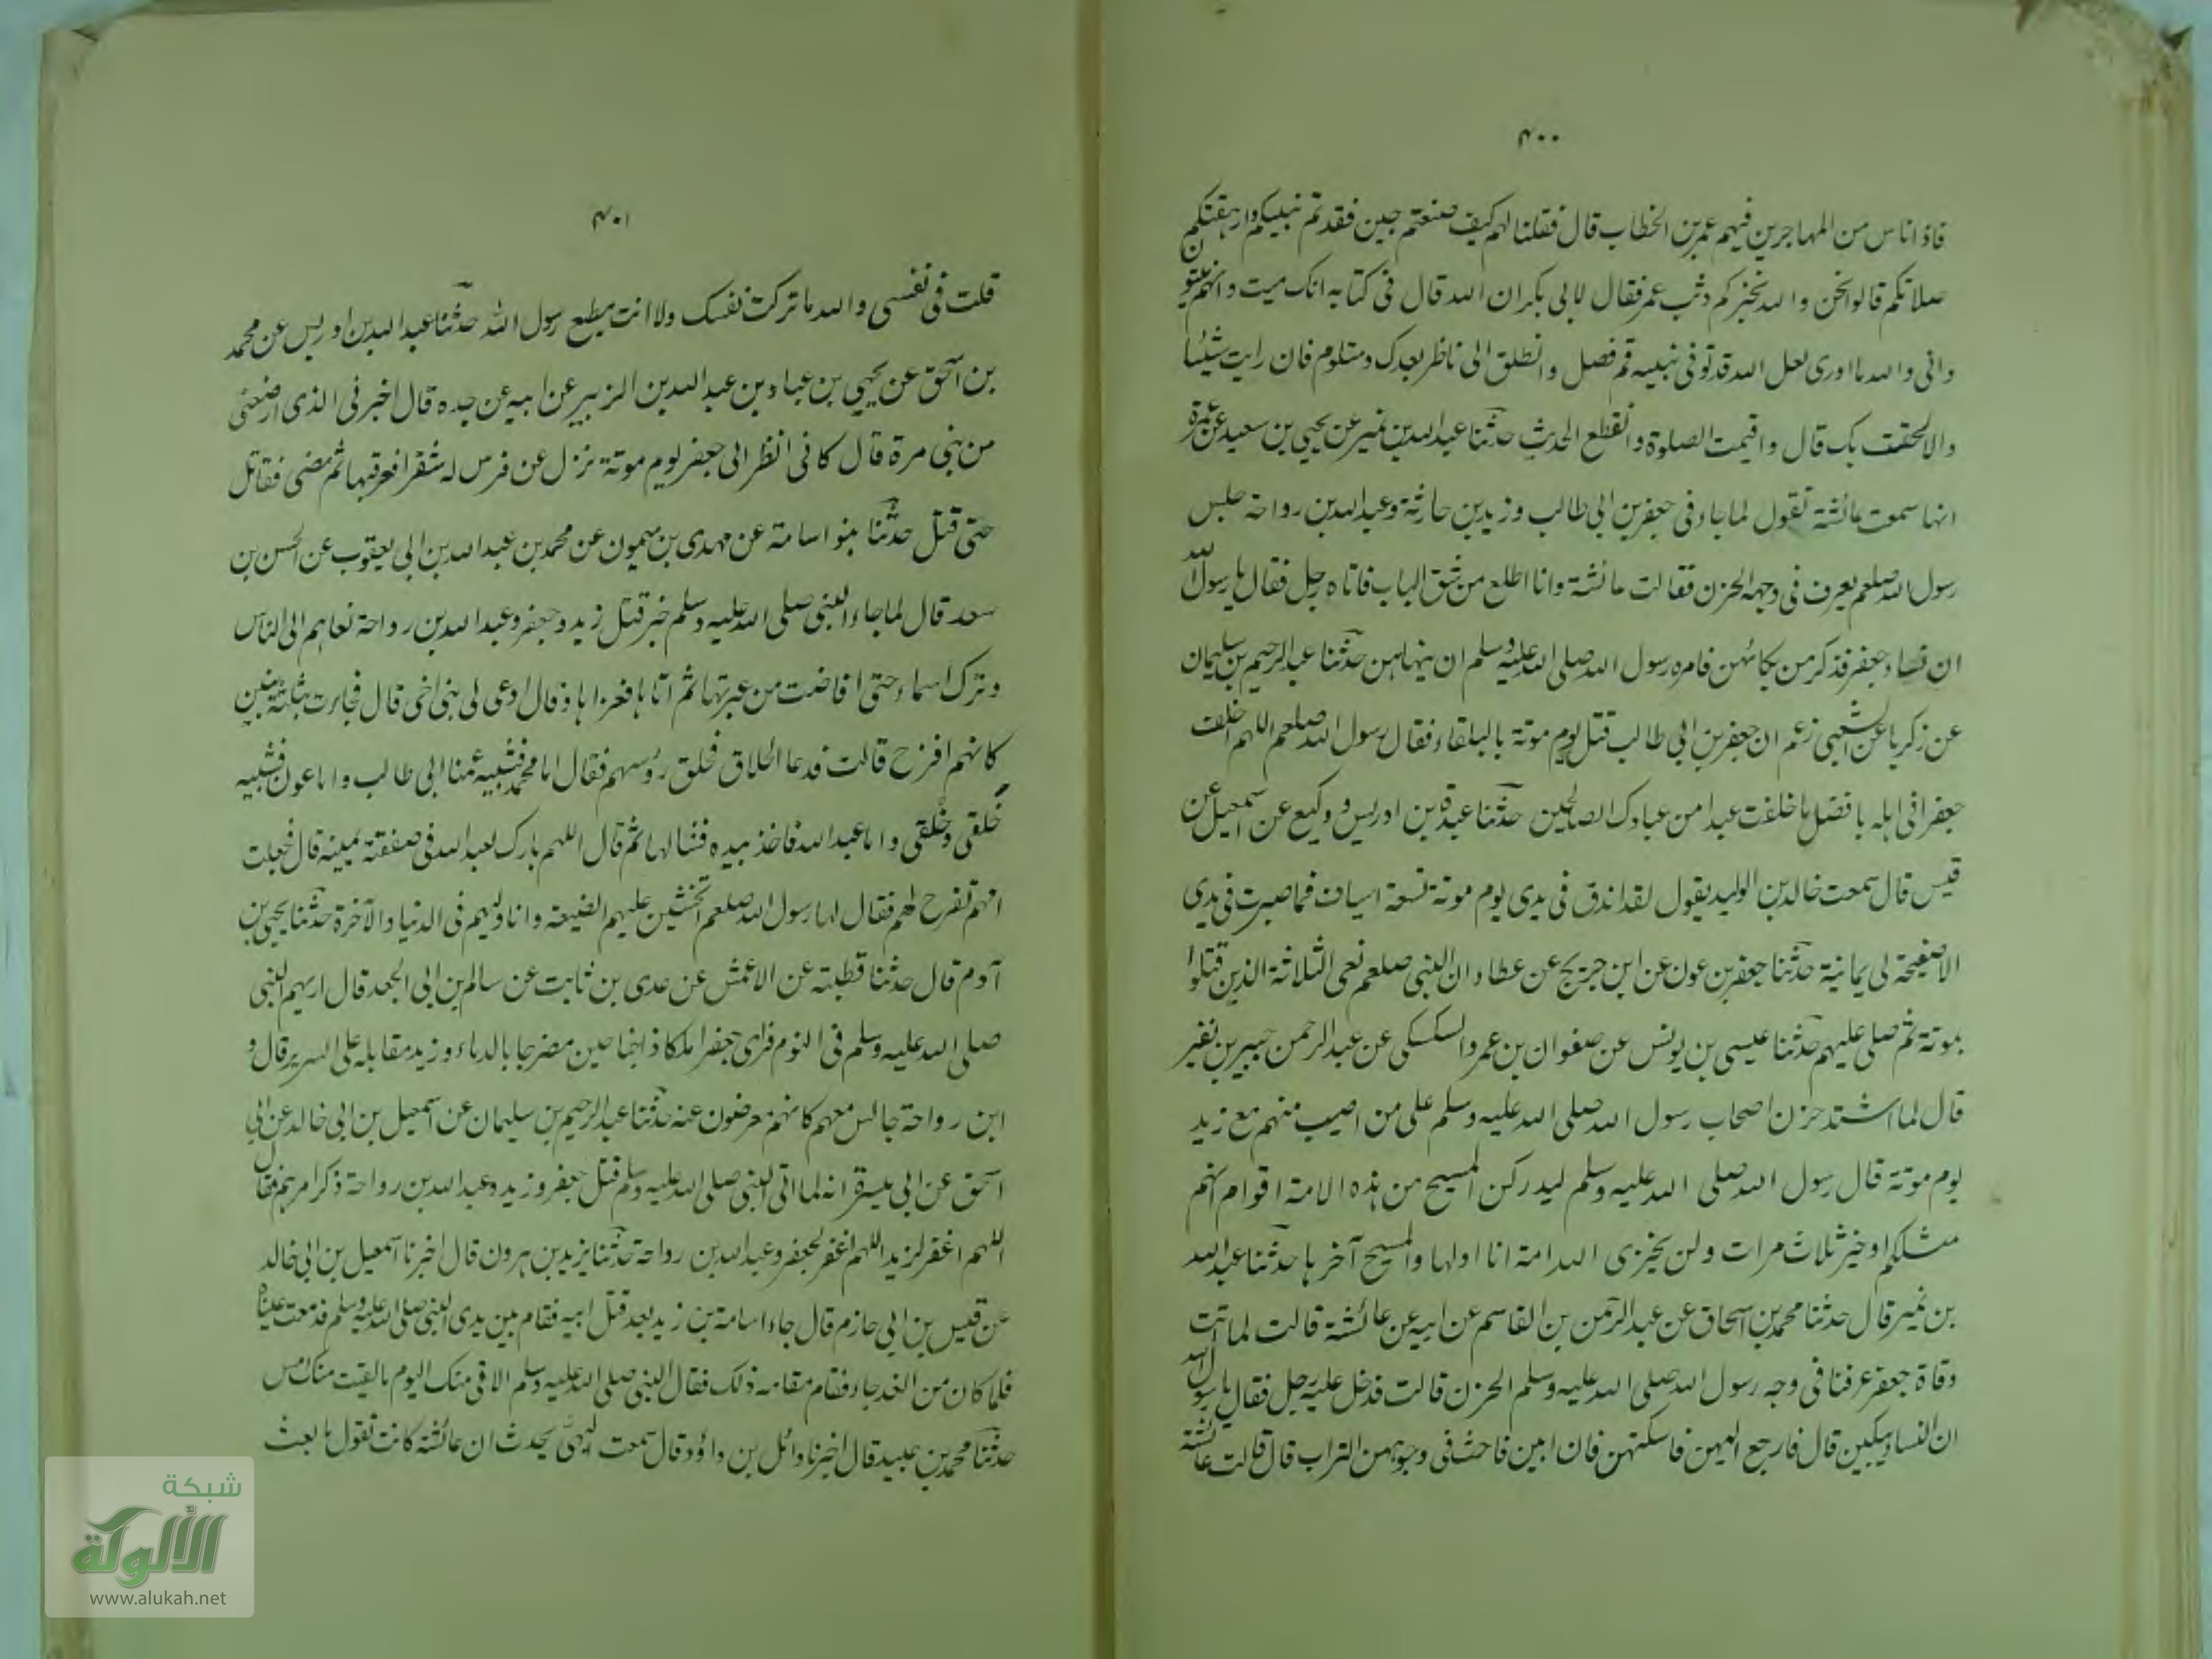 ۴۰۰
فاذا ناس من المهاجرين فيهم عمر بن الخطاب قال فقلنا لهم كيف صنعتم حين فقدتم نبيكم وارهقتكم
صلاتكم قالوا نحن والله نخبركم وثب عمر فقال لابى بكر ان الله قال فى كتابه انك ميت وانهم ميتون
وانى والله ما ادرى لعل الله قد توفى نبيه قم فصل وانطلق انى ناظر بعدك ومتلوم فان رايت شيئا
والا لحقت بك قال واقيمت الصلوة وانقطع الحديث حدثنا عبد الله بن نمير عن يحيى بن سعيد عن عمرة
انها سمعت عائشة تقول لما جاء نعى جعفر بن ابى طالب وزيد بن حارثة وعبد الله بن رواحة جلس
رسول الله صلعم يعرف فى وجهه الحزن فقالت عائشة وانا اطلع من شق الباب فاتاه رجل فقال يا رسول الله
ان نساء جعفر فذكر من بكائهن فامره رسول الله صلى الله عليه وسلم ان ينهاهن حدثنا عبد الرحيم بن سليمان
عن زكريا عن الشعبى زعم ان جعفر بن ابى طالب قتل يوم موتة بالبلقاء فقال رسول الله صلعم اللهم اخلف
جعفرا فى اهله بافضل ما خلفت عبدا من عبادك الصالحين حدثنا عبدة بن ادريس و وكيع عن اسمعيل عن
قيس قال سمعت خالد بن الوليد يقول لقد اندق فى يدى يوم موتة تسعة اسياف فما صبرت فى يدى
الا صفيحة لى يمانية حدثنا جعفر بن عون عن ابن جريج عن عطاء ان النبى صلعم نعى الثلاثة الذين قتلوا
بموتة ثم صلى عليهم حدثنا عيسى بن يونس عن صفوان بن عمرو السكسكى عن عبد الرحمن جبير بن نفير
قال لما اشتد حزن اصحاب رسول الله صلى الله عليه وسلم على من اصيب منهم مع زيد
يوم موتة قال رسول الله صلى الله عليه وسلم ليدركن المسيح من هذه الامة اقوام انهم
مثلكم او خير ثلاث مرات ولن يخزى الله امة انا اولها والمسيح آخرها حدثنا عبد الله
بن نمير قال حدثنا محمد بن اسحاق عن عبد الرحمن بن القاسم عن ابيه عن عائشة قالت لما اتت
وفاة جعفر عرفنا فى وجه رسول الله صلى الله عليه وسلم الحزن قالت فدخل عليه رجل فقال يا رسول الله
ان النساء يبكين قال فارجع اليهن فاسكتهن فان ابين فاحث فى وجوههن التراب قال قالت عائشة
۴۰۱
قلت فى نفسى والله ما تركت نفسك ولا انت مطيع رسول الله حدثنا عبد الله بن ادريس عن محمد
بن اسحق عن يحيى بن عباد بن عبد الله بن الزبير عن ابيه عن جده قال اخبرنى الذى ارضعنى
من بنى مرة قال كانى انظر الى جعفر يوم موتة نزل عن فرس له شقرا فعرقبها ثم مضى فقاتل
حتى قتل حدثنا بنو اسامة عن مهدى بن ميمون عن محمد بن عبد الله بن ابى يعقوب عن الحسن بن
سعد قال لما جاء النبى صلى الله عليه وسلم خبر قتل زيد وجعفر وعبد الله بن رواحة نعاهم الى الناس
وترك اسماء حتى افاضت من عبرتها ثم اتاها فعزاها وقال ادعى لى بنى اخى قال فجاءت بثلاثة بنين
كانهم افرخ قالت فدعا الحلاق فحلق رؤسهم فقال اما محمد فشبيه عمنا ابى طالب واما عون فشبيه
خلقى وخلقى واما عبد الله فاخذ بيده فشالها ثم قال اللهم بارك لعبد الله فى صفقة يمينه قال فجعلت
امهم تفرح لهم فقال لها رسول الله صلعم اتخشين عليهم الضيعة وانا وليهم فى الدنيا والآخرة حدثنا يحيى بن
آدم قال حدثنا قطبة عن الاعمش عن عدى بن ثابت عن سالم بن ابى الجعد قال اريهم النبى
صلى الله عليه وسلم فى النوم فراى جعفرا ملكا ذا جناحين مضرجا بالدماء وزيد مقابله على السرير قال و
ابن رواحة جالس معهم كانهم معرضون عنه حدثنا عبد الرحيم بن سليمان عن اسمعيل بن ابى خالد عن ابى
اسحق عن ابى ميسرة انه لما اتى النبى صلى الله عليه وسلم قتل جعفر وزيد وعبد الله بن رواحة ذكر امرهم فقال
اللهم اغفر لزيد اللهم اغفر لجعفر وعبد الله بن رواحة حدثنا يزيد بن هرون قال اخبرنا اسمعيل بن ابى خالد
عن قيس بن ابى حازم قال جاء اسامة بن زيد بعد قتل ابيه فقام بين يدى النبى صلى الله عليه وسلم فدمعت عيناه
فلما كان من الغد جاء فقام مقامه ذلك فقال النبى صلى الله عليه وسلم الاقى منك اليوم ما لقيت منك امس
حدثنا محمد بن عبيد قال اخبرنا وائل بن داؤد قال سمعت البهى يحدث ان عائشة كانت تقول ما بعث
شبكة
الألوكة
www.alukah.net